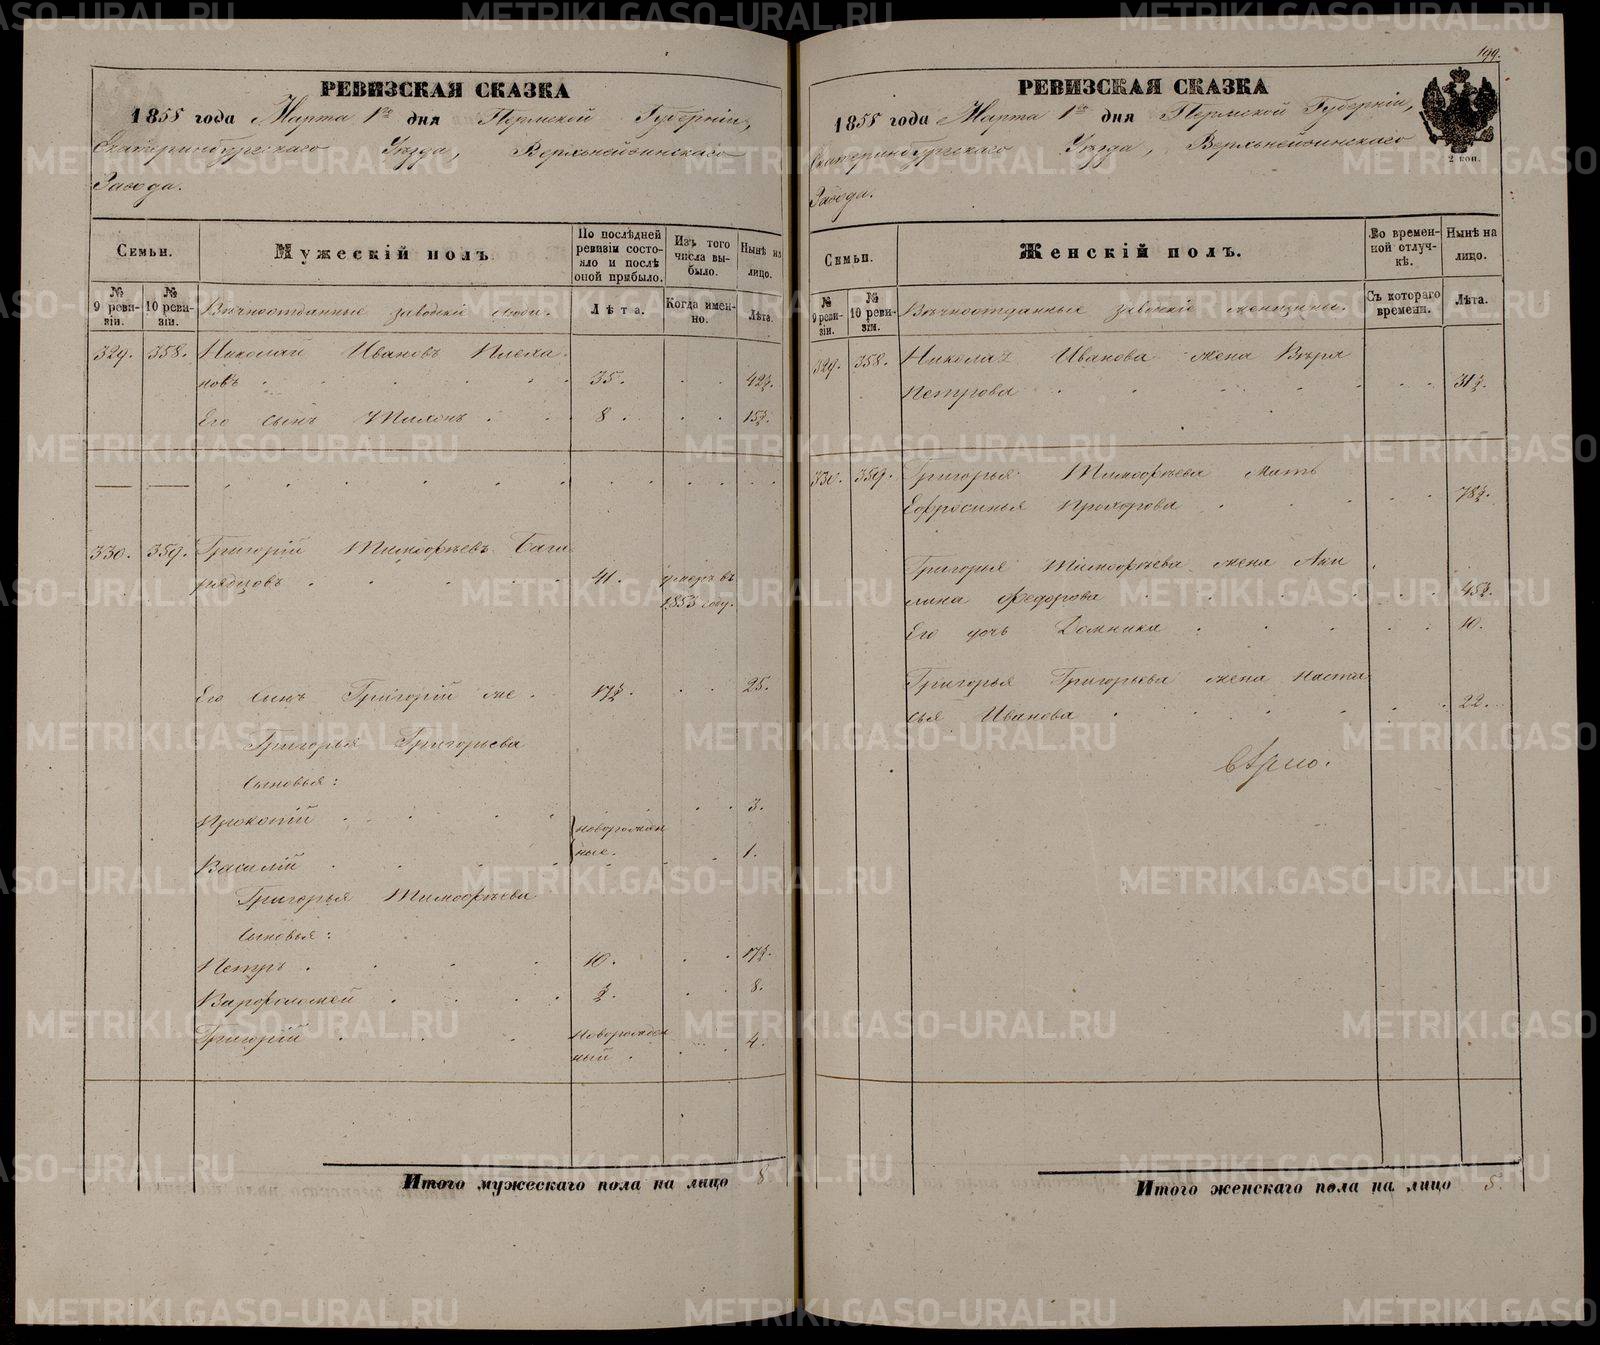 РЕВИЗСКАЯ СКАЗКА
1858 года Марта 1го дня Пермской Губерніи,
Екатеринбургскаго Уѣзда, Верхънейвинскаго
Завода.
Семьи.
Мужескій полъ
По послѣдней ревизіи состояло и послѣ оной прибыло.
Изъ того числа выбыло.
Нынѣ на лицо.
№ 9 ревизіи.
№ 10 ревизіи.
Вѣчноотданные заводскіе люди.
Лѣта.
Когда именно.
Лѣта.
329. 358. Николай Ивановъ Плеха
новъ 35. 42½.
Его сынъ Тихонъ 8. 15½.
330. 359. Григорій Тимофѣевъ
41. умеръ въ
1853 году.
Его сынъ Григорій 17½. 25.
Григорья Григорьева
сыновья:
Прокопій 3.
новорожден
ные.
Василій 1.
Григорья Тимофѣева
сыновья:
Петръ 10. 17½.
Варфоломей ½. 8.
Григорій новорожден
ный 4.
Итого мужескаго пола на лицо 8
199.
РЕВИЗСКАЯ СКАЗКА
1858 года Марта 1го дня Пермской Губерніи,
Екатеринбургскаго Уѣзда, Верхънейвинскаго
Завода.
2 коп.
Семьи.
Женскій полъ.
Во временной отлучкѣ.
Нынѣ на лицо.
№ 9 ревизіи.
№ 10 ревизіи.
Вѣчноотданные заводскіе женщины.
Съ котораго времени.
Лѣта.
329. 358. Николая Иванова жена Вѣра
Петрова 31½.
330. 359. Григорья Тимофѣева мать
Ефросинья Прохорова 78½.
Григорья Тимофѣева жена Аки
лина Федорова 45½.
Его дочь Домника 10.
Григорья Григорьева жена Наста
сья Иванова 22.
Итого женскаго пола на лицо 5.
METRIKI.GASO-URAL.RU